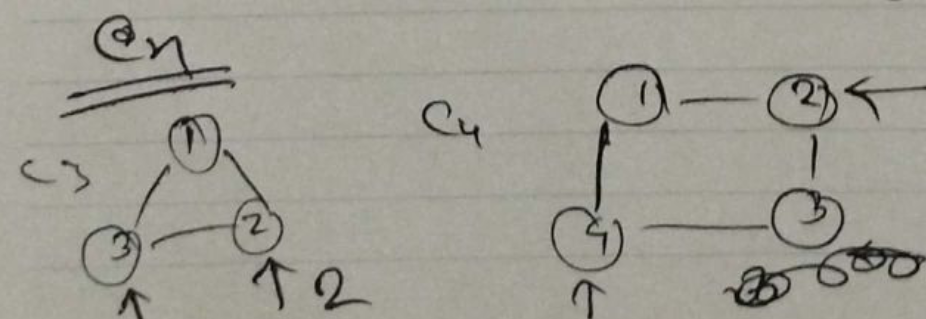 Cn
C3
1
3
2
2
C4
1
2
4
3